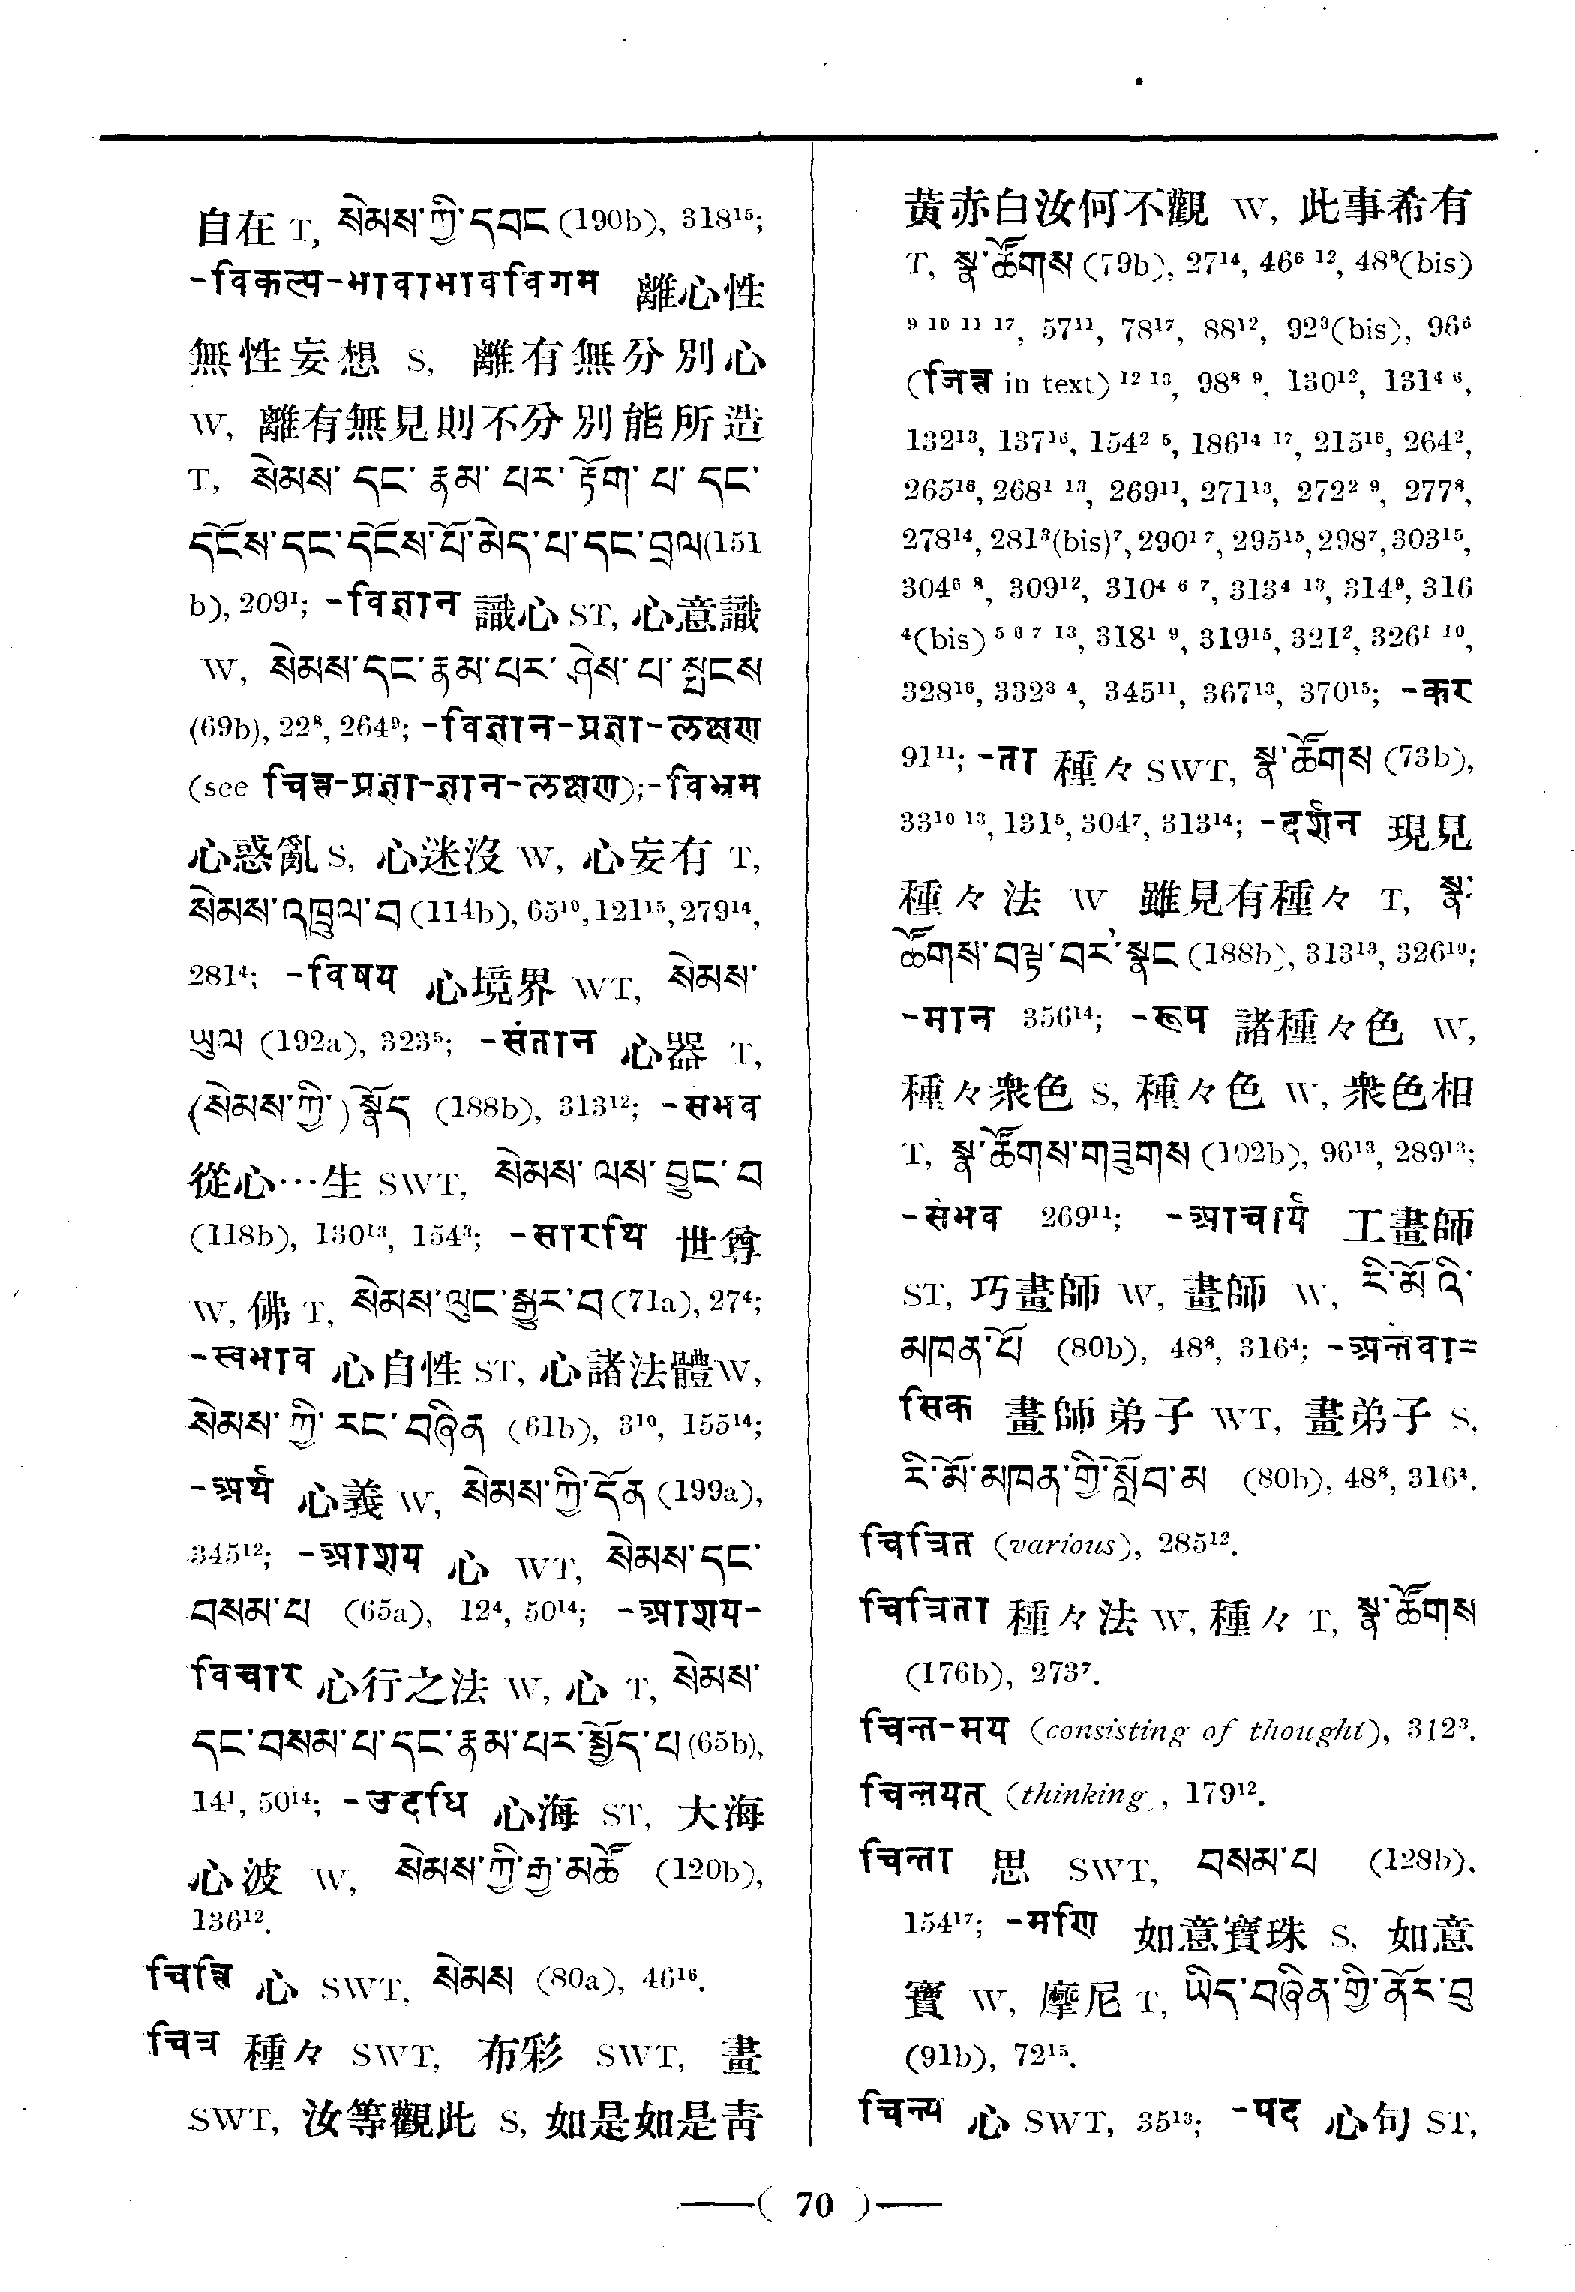 自在 T, སེམས་ཀྱི་དབང (190b), 318¹⁵;
-विकल्प-भावाभावविगम 離心性
無性妄想 S, 離有無分別心
W, 離有無見則不分別能所造
T, སེམས་ དང་ རྣམ་ པར་ རྟོག་ པ་ དང་
དངོས་དང་དངོས་པོ་མེད་པ་དང་བྲལ(151
b), 209¹; -विज्ञान 識心 ST, 心意識
W, སེམས་དང་རྣམ་པར་ཤེས་པ་སྤངས
(69b), 22⁸, 264⁹; -विज्ञान-प्रज्ञा-लक्षण
(see चित्त-प्रज्ञा-ज्ञान-लक्षण);-विभ्रम
心惑亂 S, 心迷沒 W, 心妄有 T,
སེམས་འཁྲུལ་བ (114b), 65¹⁰, 121¹⁵, 279¹⁴,
281⁴; -विषय 心境界 WT, སེམས་
ཡུལ (192a), 323⁵; -संतान 心器 T,
(སེམས་ཀྱི་) སྣོད (188b), 313¹²; -संभव
從心…生 SWT, སེམས་ ལས་ བྱུང་ བ
(118b), 130¹³, 154³; -सारथि 世尊
W, 佛 T, སེམས་ལུང་སྒྱུར་བ (71a), 27⁴;
-स्वभाव 心自性 ST, 心諸法體W,
སེམས་ ཀྱི་ རང་ བཞིན (61b), 3¹⁰, 155¹⁴;
-अर्थ 心義 W, སེམས་ཀྱི་དོན (199a),
345¹²; -आशय 心 WT, སེམས་དང་
བསམ་པ (65a), 12⁴, 50¹⁴; -आशय-
विचार 心行之法 W, 心 T, སེམས་
དང་བསམ་པ་དང་རྣམ་པར་སྤྱོད་པ (65b),
14¹, 50¹⁴; -उदधि 心海 ST, 大海
心波 W, སེམས་ཀྱི་རྒྱ་མཚོ (120b),
136¹².
चित्ति 心 SWT, སེམས (80a), 46¹⁶.
चित्र 種々 SWT, 布彩 SWT, 畫
SWT, 汝等觀此 S, 如是如是靑
黃赤白汝何不觀 W, 此事希有
T, སྣ་ཚོགས (79b), 27¹⁴, 46⁶ ¹², 48⁸(bis)
⁹ ¹⁰ ¹¹ ¹⁷, 57¹¹, 78¹⁷, 88¹², 92³(bis), 96⁶
(जित्त in text) ¹² ¹³, 98⁸ ⁹, 130¹², 131⁴ ⁶,
132¹³, 137¹⁶, 154² ⁵, 186¹⁴ ¹⁷, 215¹⁶, 264²,
265¹⁶, 268¹ ¹³, 269¹¹, 271¹³, 272² ⁹, 277⁸,
278¹⁴, 281³(bis)⁷, 290¹ ⁷, 295¹⁵, 298⁷, 303¹⁵,
304⁶ ⁸, 309¹², 310⁴ ⁶ ⁷, 313⁴ ¹³, 314⁹, 316
⁴(bis) ⁵ ⁶ ⁷ ¹³, 318¹ ⁹, 319¹⁵, 321², 326¹ ¹⁰,
328¹⁶, 332³ ⁴, 345¹¹, 367¹³, 370¹⁵; -कर
91¹¹; -ता 種々 SWT, སྣ་ཚོགས (73b),
33¹⁰ ¹³, 131⁵, 304⁷, 313¹⁴; -दर्शन 現見
種々法 W 雖見有種々 T, སྣ་
ཚོགས་བལྟ་བར་སྣང (188b), 313¹³, 326¹⁰;
-मान 356¹⁴; -रूप 諸種々色 W,
種々衆色 S, 種々色 W, 衆色相
T, སྣ་ཚོགས་གཟུགས (102b), 96¹³, 289¹³;
-संभव 269¹¹; -आचार्य 工畫師
ST, 巧畫師 W, 畫師 W, རི་མོ་འི་
མཁན་པོ (80b), 48⁸, 316⁴; -अन्तेवा=
सिक 畫師弟子 WT, 畫弟子 S,
རི་མོ་མཁན་གྱི་སློབ་མ (80b), 48⁸, 316⁴.
चित्रित (various), 285¹².
चित्रिता 種々法 W, 種々 T, སྣ་ཚོགས
(176b), 273⁷.
चिन्त-मय (consisting of thought), 312³.
चिन्तयत् (thinking), 179¹².
चिन्ता 思 SWT, བསམ་པ (128b),
154¹⁷; -मणि 如意寶珠 S, 如意
寶 W, 摩尼 T, ཡིད་བཞིན་གྱི་ནོར་བུ
(91b), 72¹⁵.
चिन्त्य 心 SWT, 35¹³; -पद 心句 ST,
—( 70 )—